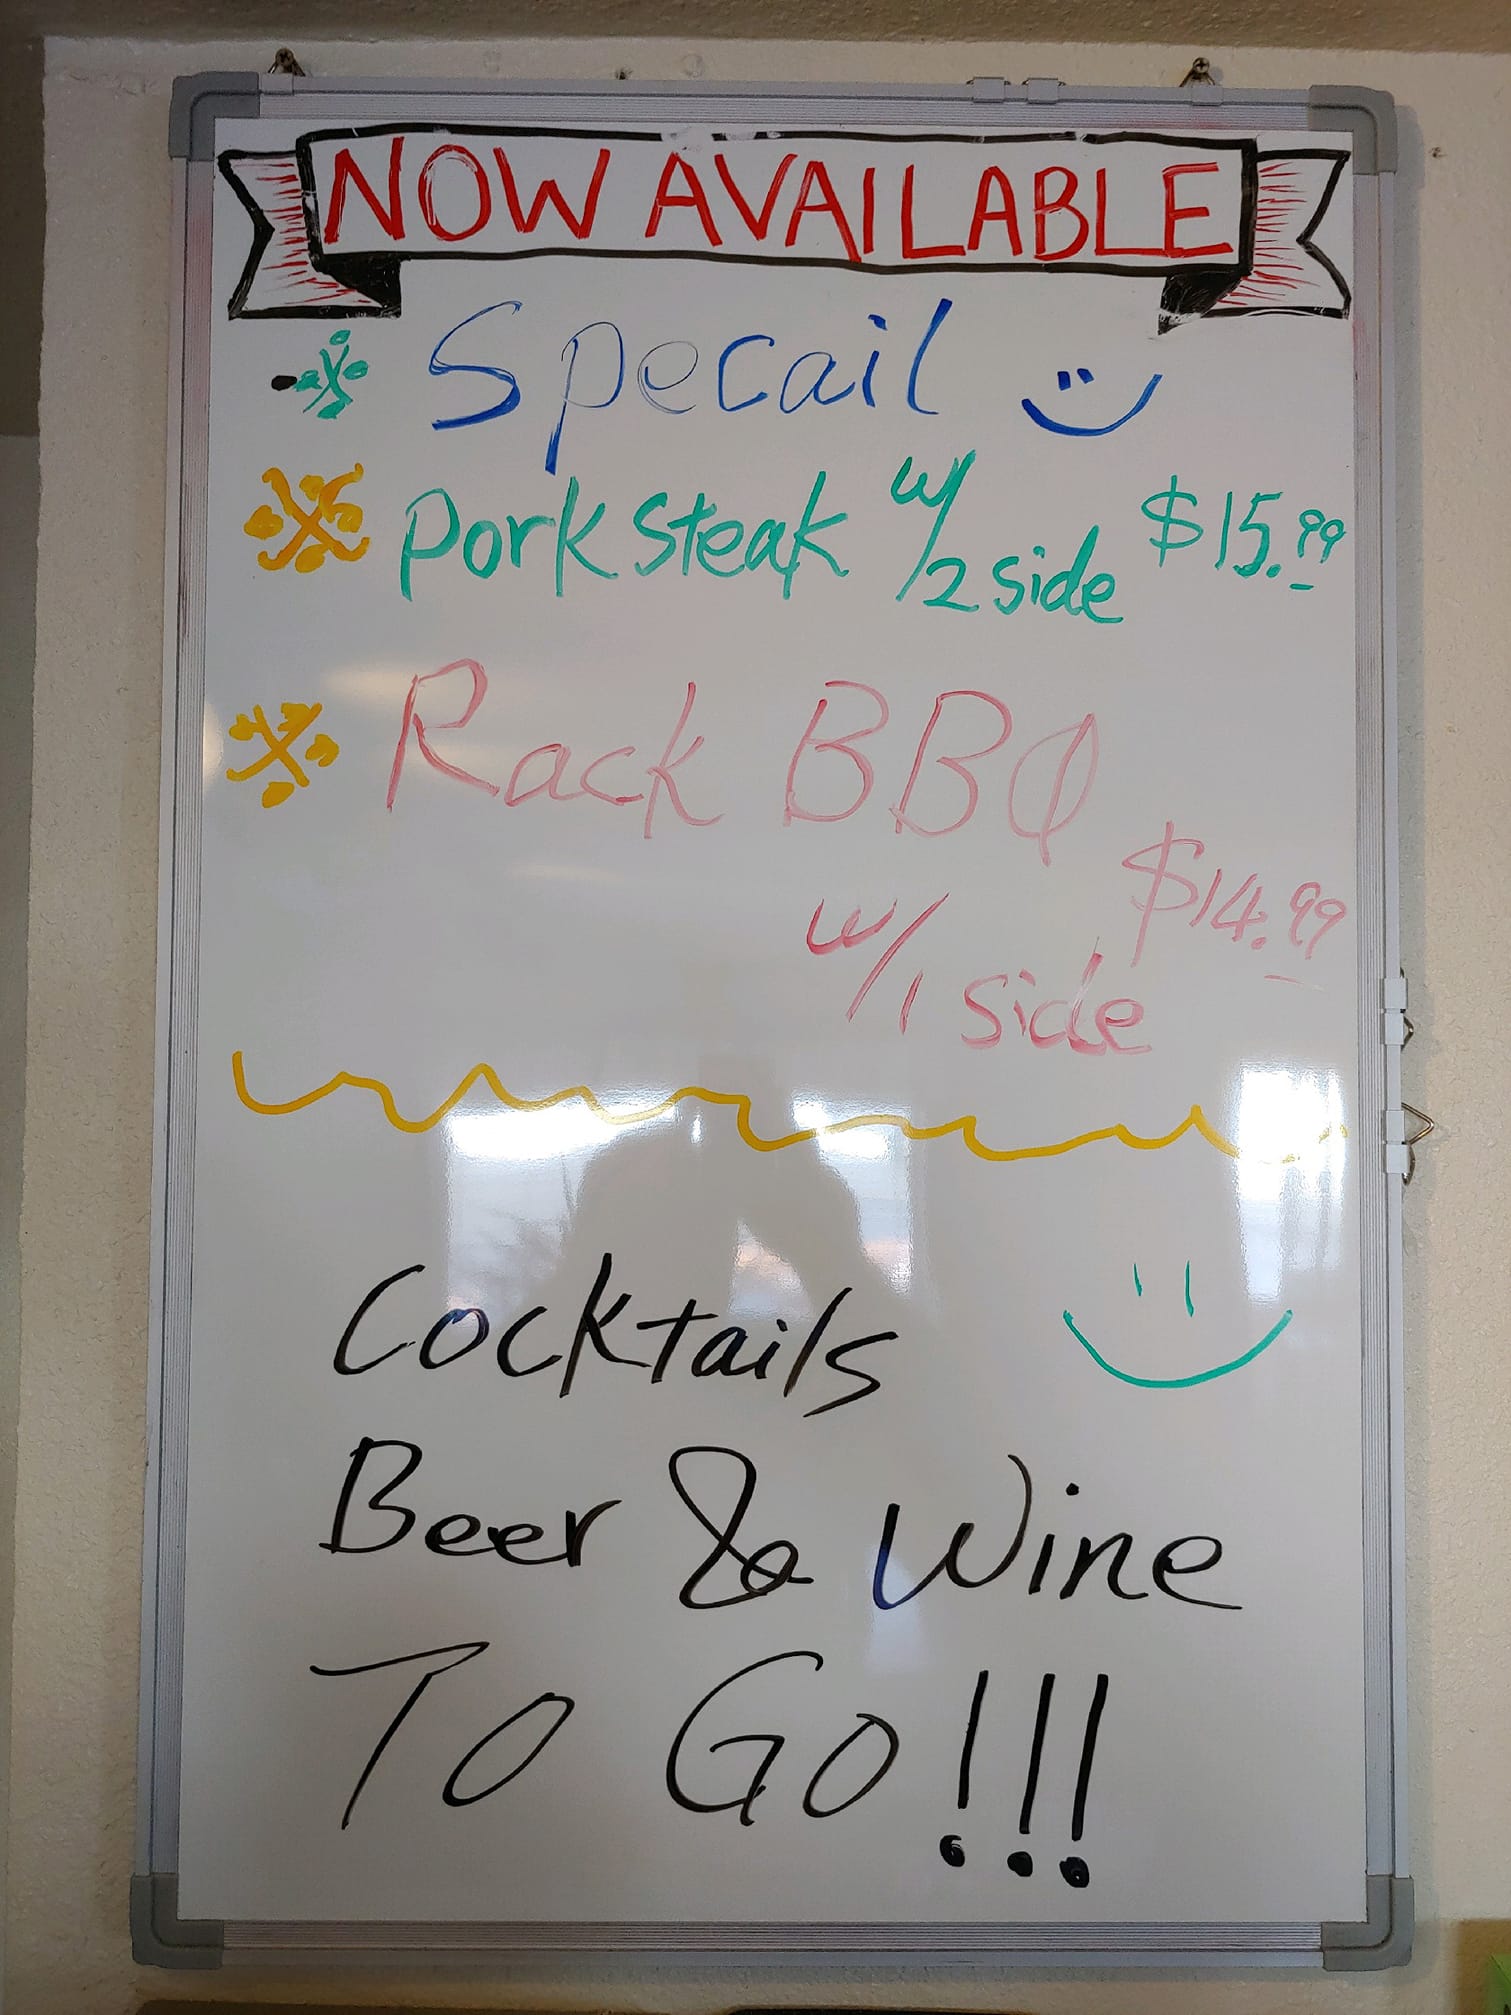 NOW AVAILABLE
Specail
Pork steak w/ 2 side $15.99
Rack BBQ
w/1 side $14.99
Cocktails
Beer & Wine
TO GO!!!